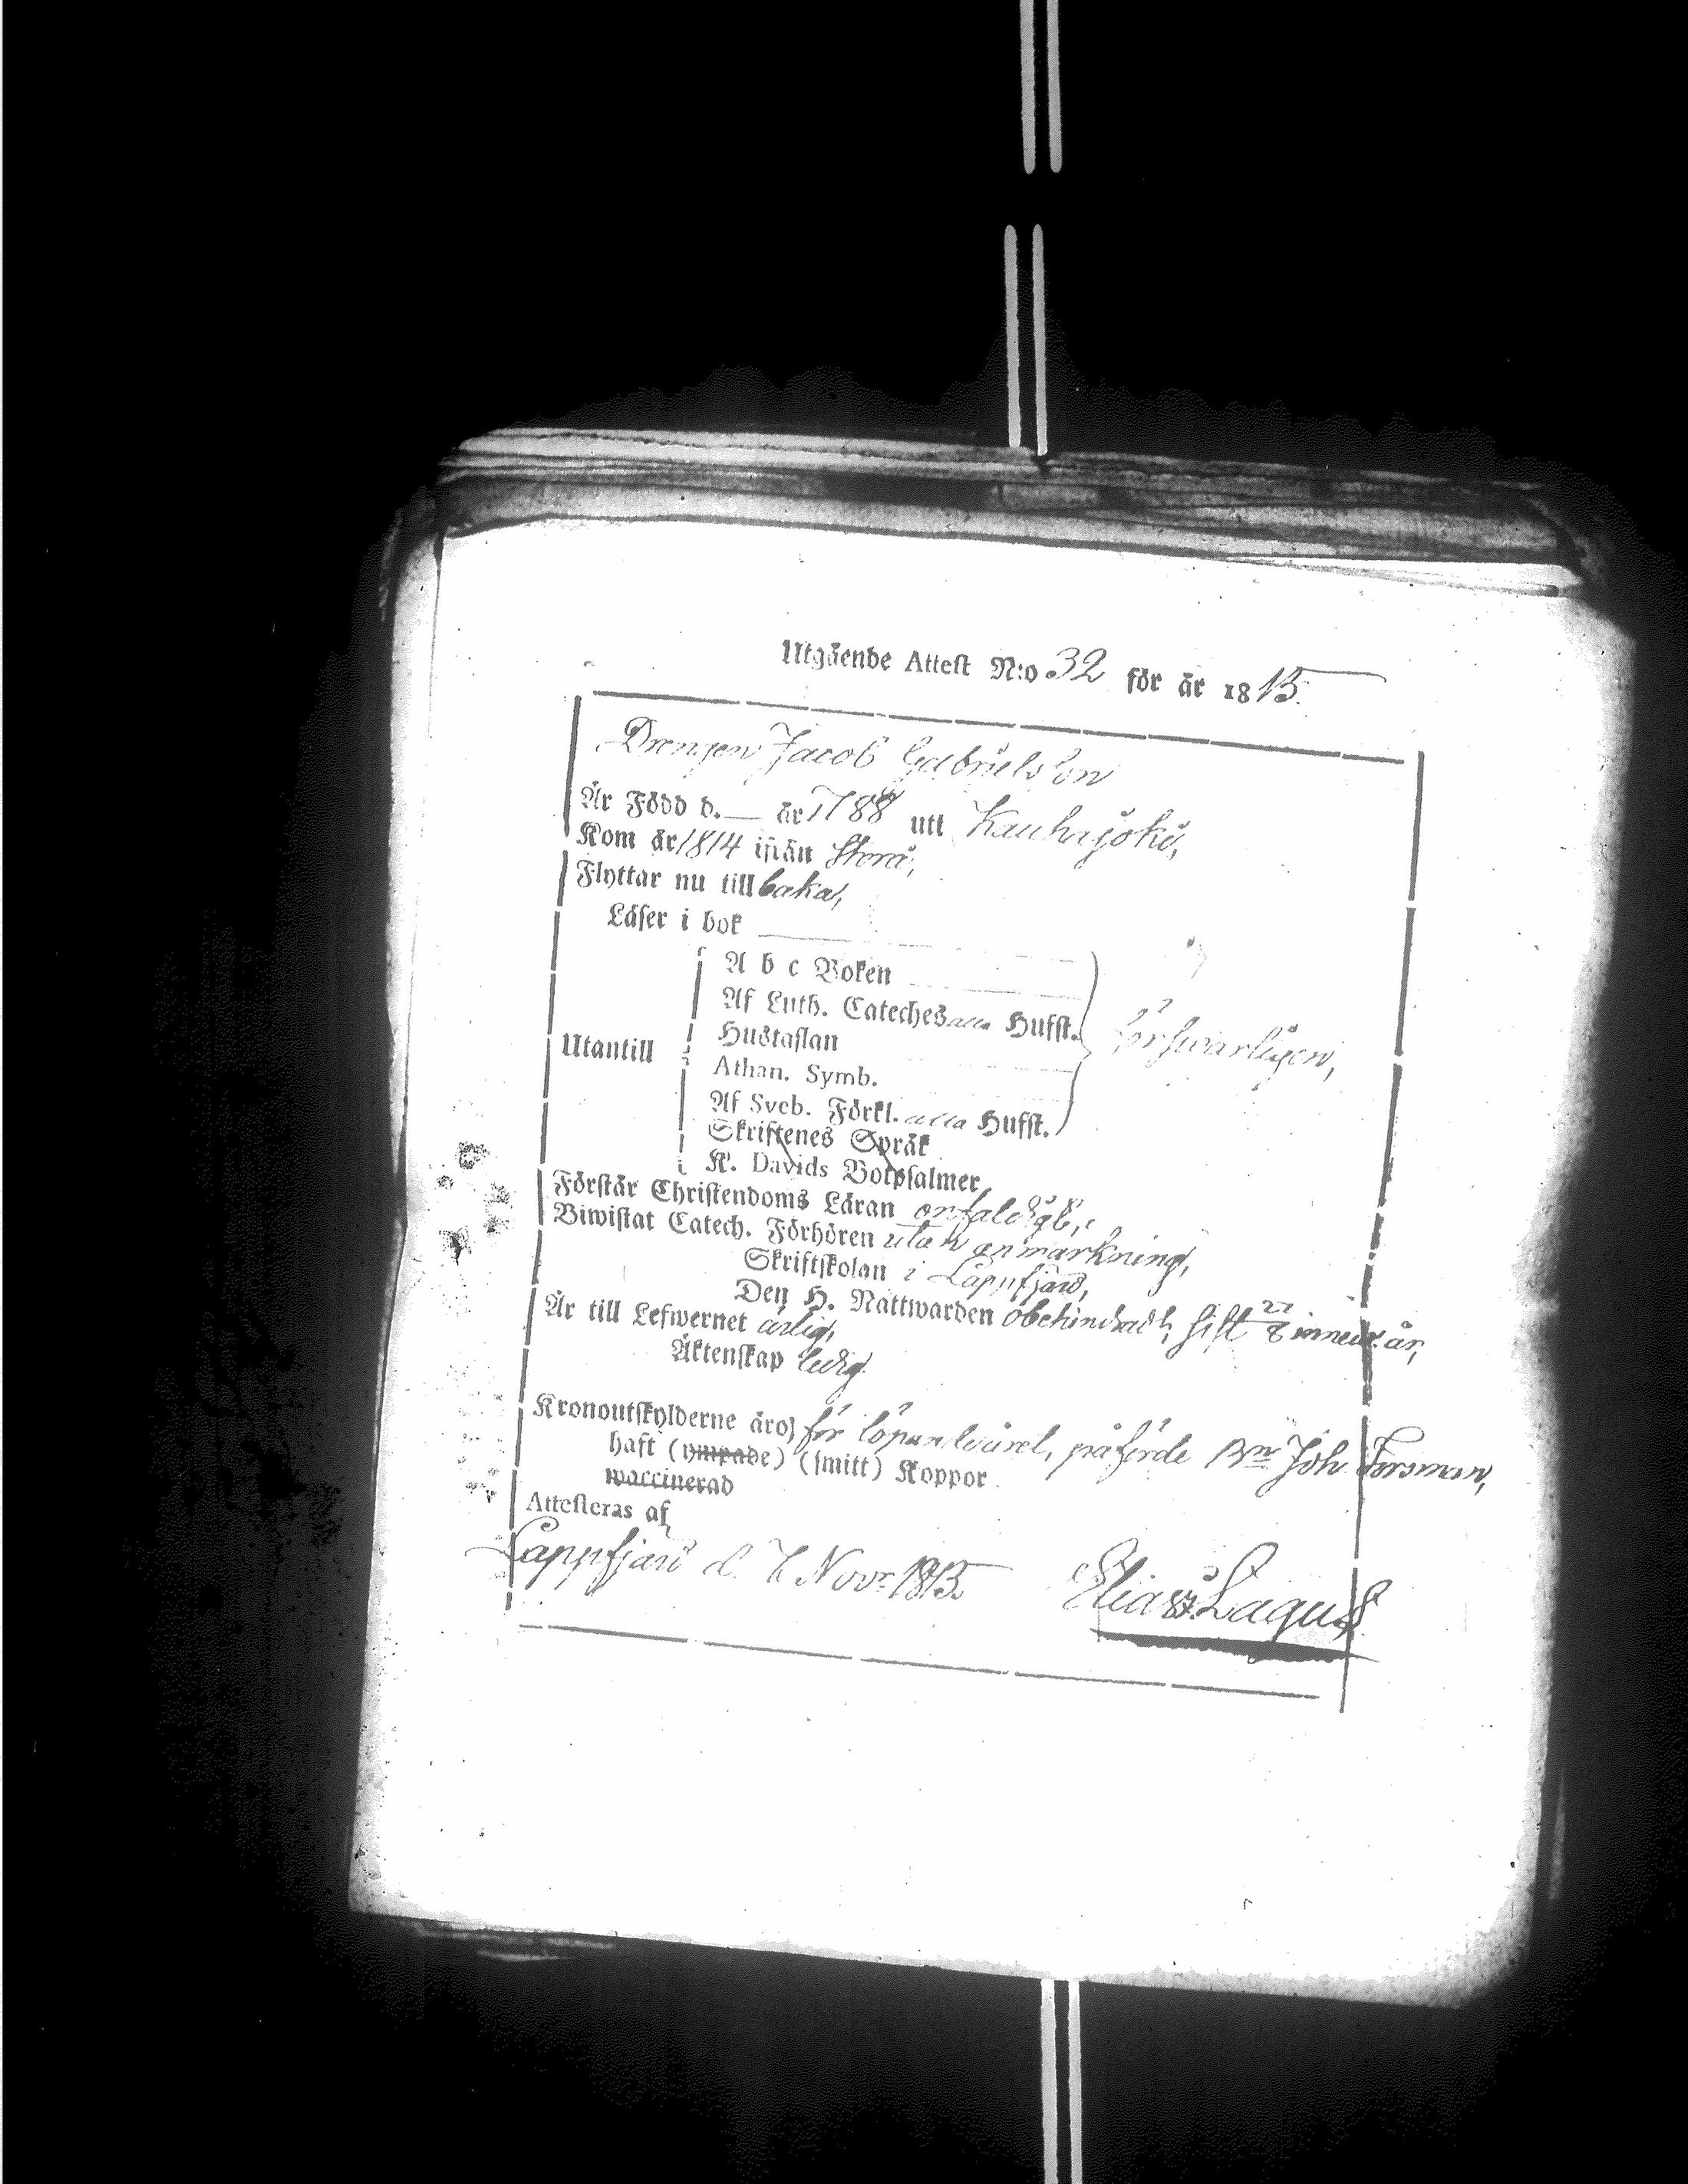 Utgående Attest N:o 32 för år 1815.
Drengen Jacob Gabrielsson
Är Född d. — år 1788 uti Kauhajoki,
Kom år 1814 ifrån Storå,
Flyttar nu till baka,
Läser i bok
A b c Boken
Af Luth. Cateches alla Hufst.
Hustaflan
Utantill
Athan. Symb.
försvarligen,
Af Sveb. Förkl. alla Hufst.
Skriftenes Språk
K. Davids Botpsalmer
Förstår Christendoms Läran enfaldigt,
Biwistat Catech. Förhören utan anmärkning,
Skriftskolan i Lappfjärd,
Den H. Nattwarden obehindradt, sist innev. år,
Är till Lefwernet ärlig,
Äktenskap ledig
Kronoutskylderne äro för löpande året, påförde Bn Joh. Forsman,
haft (ympade) (smitt) Koppor
waccinerad
Attesteras af
Lappfjärd d. 7 Novr 1815.
Elias Lagus